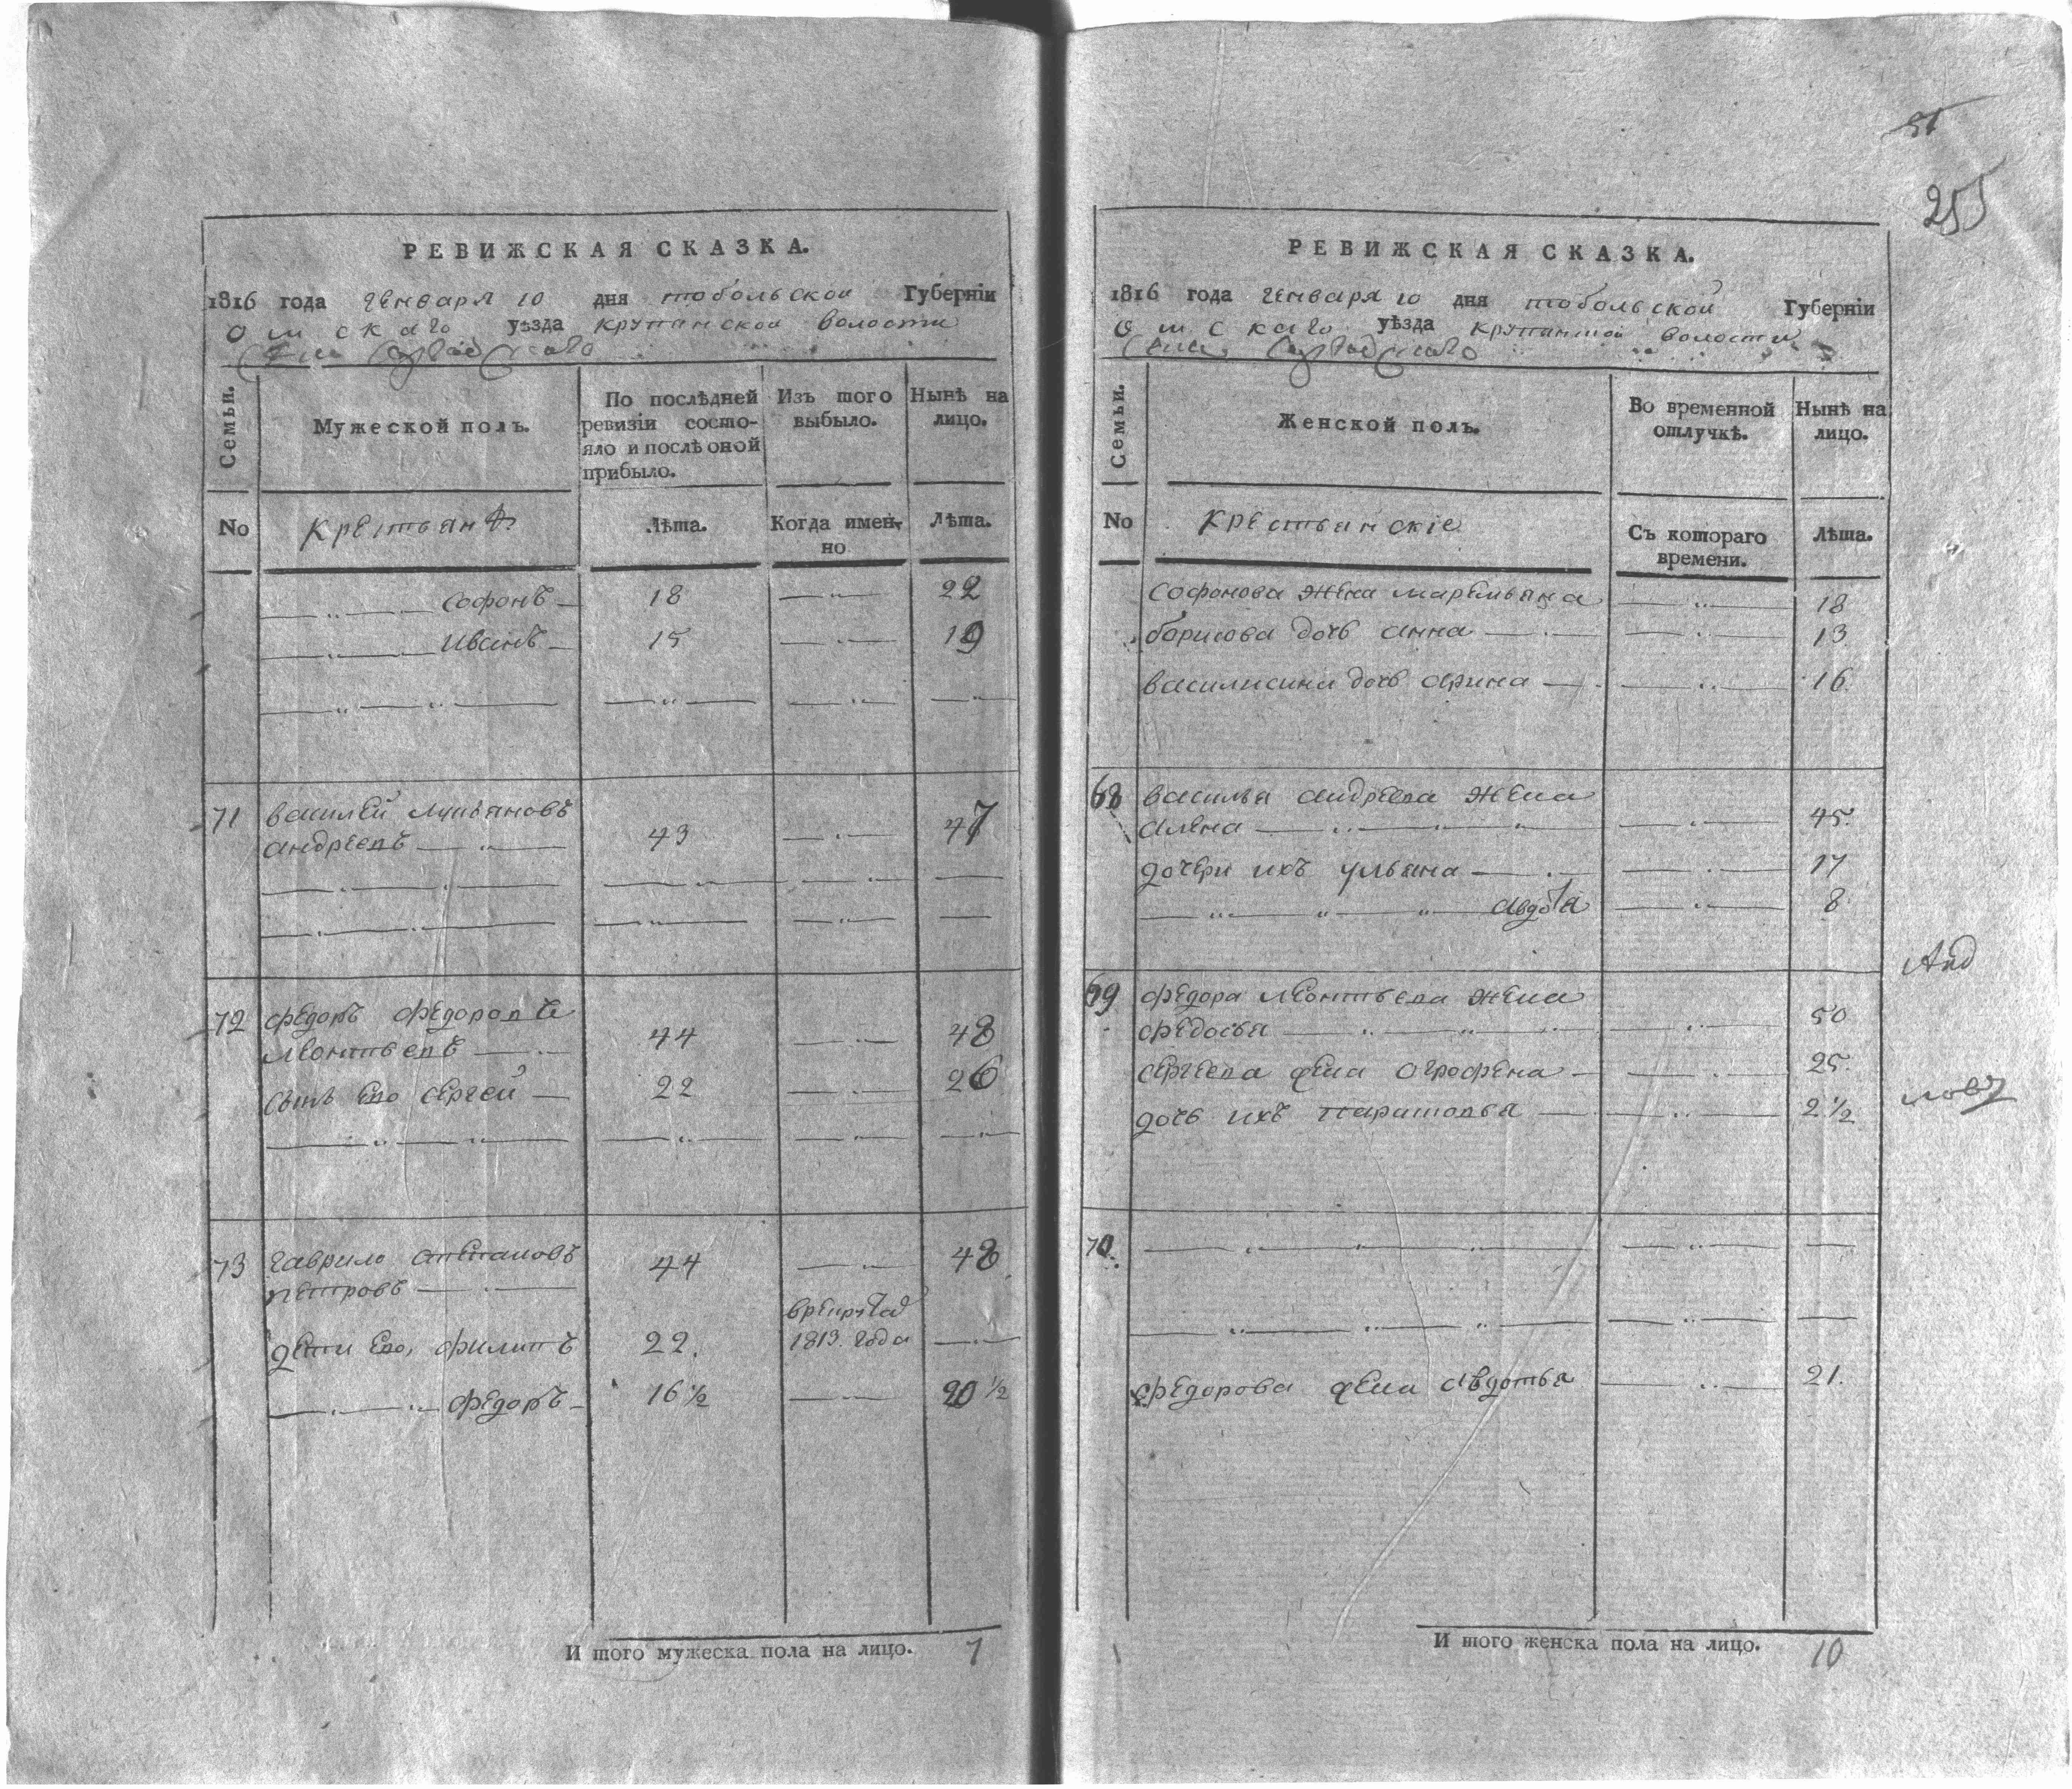 РЕВИЖСКАЯ СКАЗКА.
1816 года Генваря 10 дня тобольской Губерніи
Омскаго уѣзда крупянской волости
Семьи.
Мужеской полъ.
По послѣдней
ревизіи состо-
яло и послѣ оной
прибыло.
Изъ того
выбыло.
Нынѣ на
лицо.
No
Крестьянъ
Лѣта.
Когда имен-
но
Лѣта.
— „ — Софонъ — 18 — „ — 22
— „ — Иванъ — 15 — „ — 19
71 василей лукьяновъ
андреевъ — „ — 43 — „ — 47
72 федоръ федоровъ
леонтьевъ — 44 — „ — 48
сынъ Ево сергей — 22 — „ — 26
73 гаврило степановъ
петровъ — 44 — „ — 48
врекруты
дети Ево, филипъ 22. 1813. года — „ —
— „ — федоръ — 16 ½ — 20 ½
И того мужеска пола на лицо. 7
51
255
РЕВИЖСКАЯ СКАЗКА.
1816 года Генваря 10 дня тобольской Губерніи
Омскаго уѣзда крупянской волости
Семьи.
Женской полъ.
Во временной
отлучкѣ.
Нынѣ на
лицо.
No
Крестьянскіе
Съ котораго
времени.
Лѣта.
Софонова жена маремьяна — „ — 18
борисова дочь анна — „ — 13
василисина дочь арина — „ — 16
68 василья андреева жена
алена — „ — 45
дочери ихъ ульяна — „ — 17
— „ — авдотя — „ — 8
69 федора леонтьева жена
федосья — „ — 50
сергеева жена огрофена — „ — 25
дочь ихъ парасковья — „ — 2 ½
70.
федорова жена авдотья — „ — 21.
И того женска пола на лицо. 10